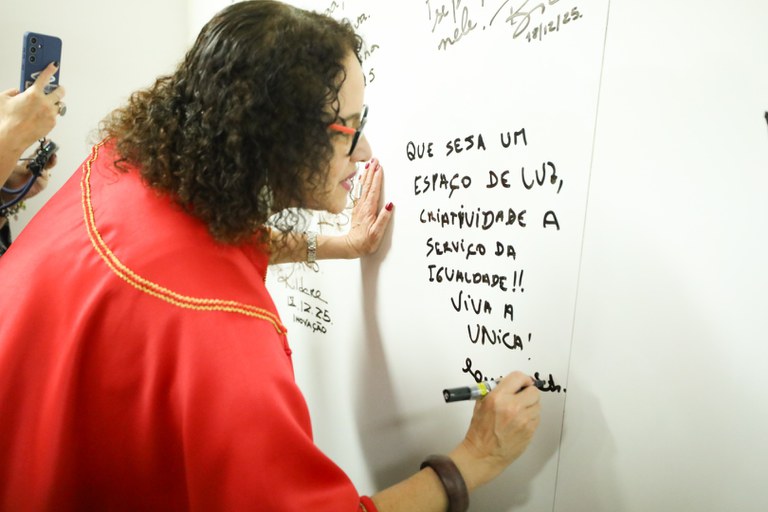 nele.
18/12/25.
QUE SEJA UM
ESPAÇO DE LUZ,
CRIATIVIDADE A
SERVIÇO DA
IGUALDADE!!
VIVA A
UNICA!
12.25
INOVAÇÃO